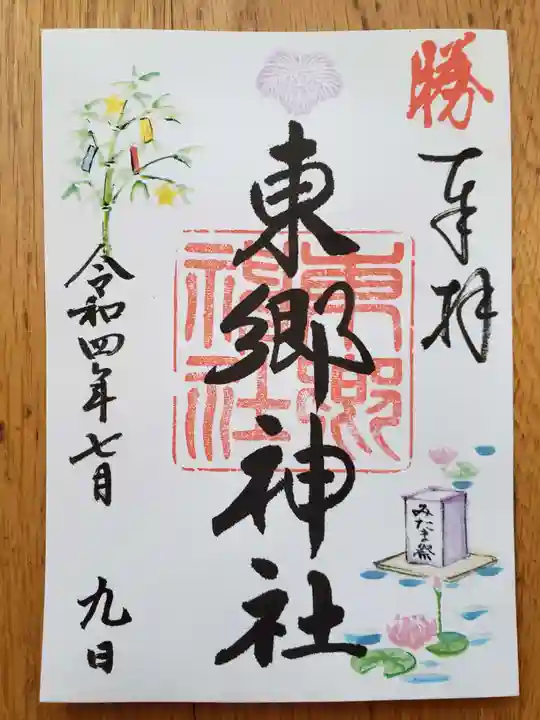 勝
奉拝
東郷神社
東郷神社
令和四年七月
九日
みたま祭